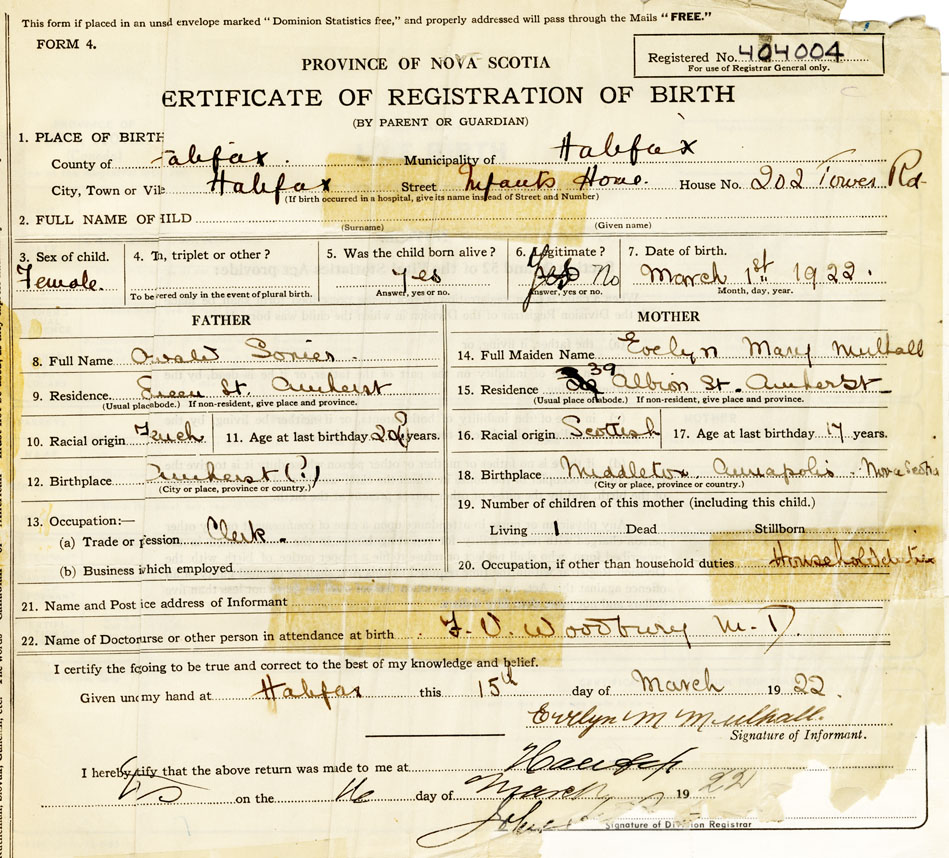 This form if placed in an unsd envelope marked "Dominion Statistics free," and properly addressed will pass through the Mails "FREE."
FORM 4.
Registered No. 404004
For use of Registrar General only.
PROVINCE OF NOVA SCOTIA
ERTIFICATE OF REGISTRATION OF BIRTH
(BY PARENT OR GUARDIAN)
1. PLACE OF BIRTH
County of alifax. Municipality of Halifax
City, Town or Vil Halifax Street Infants Home. House No. 202 Tower Rd.
(If birth occurred in a hospital, give its name instead of Street and Number)
2. FULL NAME OF HILD
(Surname) (Given name)
3. Sex of child. 4. T n, triplet or other? 5. Was the child born alive? 6. egitimate? 7. Date of birth.
Female. yes Yes No March 1st 1922.
To be ered only in the event of plural birth. Answer, yes or no. Answer, yes or no. Month, day, year.
FATHER MOTHER
8. Full Name Sonier 14. Full Maiden Name Evelyn Mary Mulhall
9. Residence Green St. Amherst 15. Residence 39 Albion St. Amherst
(Usual place abode.) If non-resident, give place and province. (Usual place of abode.) If non-resident, give place and province.
10. Racial origin French 11. Age at last birthday 20? years. 16. Racial origin Scottish 17. Age at last birthday 17 years.
12. Birthplace Amherst (?) 18. Birthplace Middleton Annapolis - Nova Scotia
(City or place, province or country.) (City or place, province or country.)
19. Number of children of this mother (including this child.)
13. Occupation:—
(a) Trade or fession Clerk. Living 1 Dead Stillborn
(b) Business i hich employed 20. Occupation, if other than household duties Household duties
21. Name and Post ice address of Informant
22. Name of Docto urse or other person in attendance at birth F. V. Woodbury M.D.
I certify the f going to be true and correct to the best of my knowledge and belief.
Given un my hand at Halifax this 15th day of March 1922.
Evelyn M Mulhall.
Signature of Informant.
I hereby tify that the above return was made to me at Halifax
on the 16 day of March 1922
John
Signature of Division Registrar